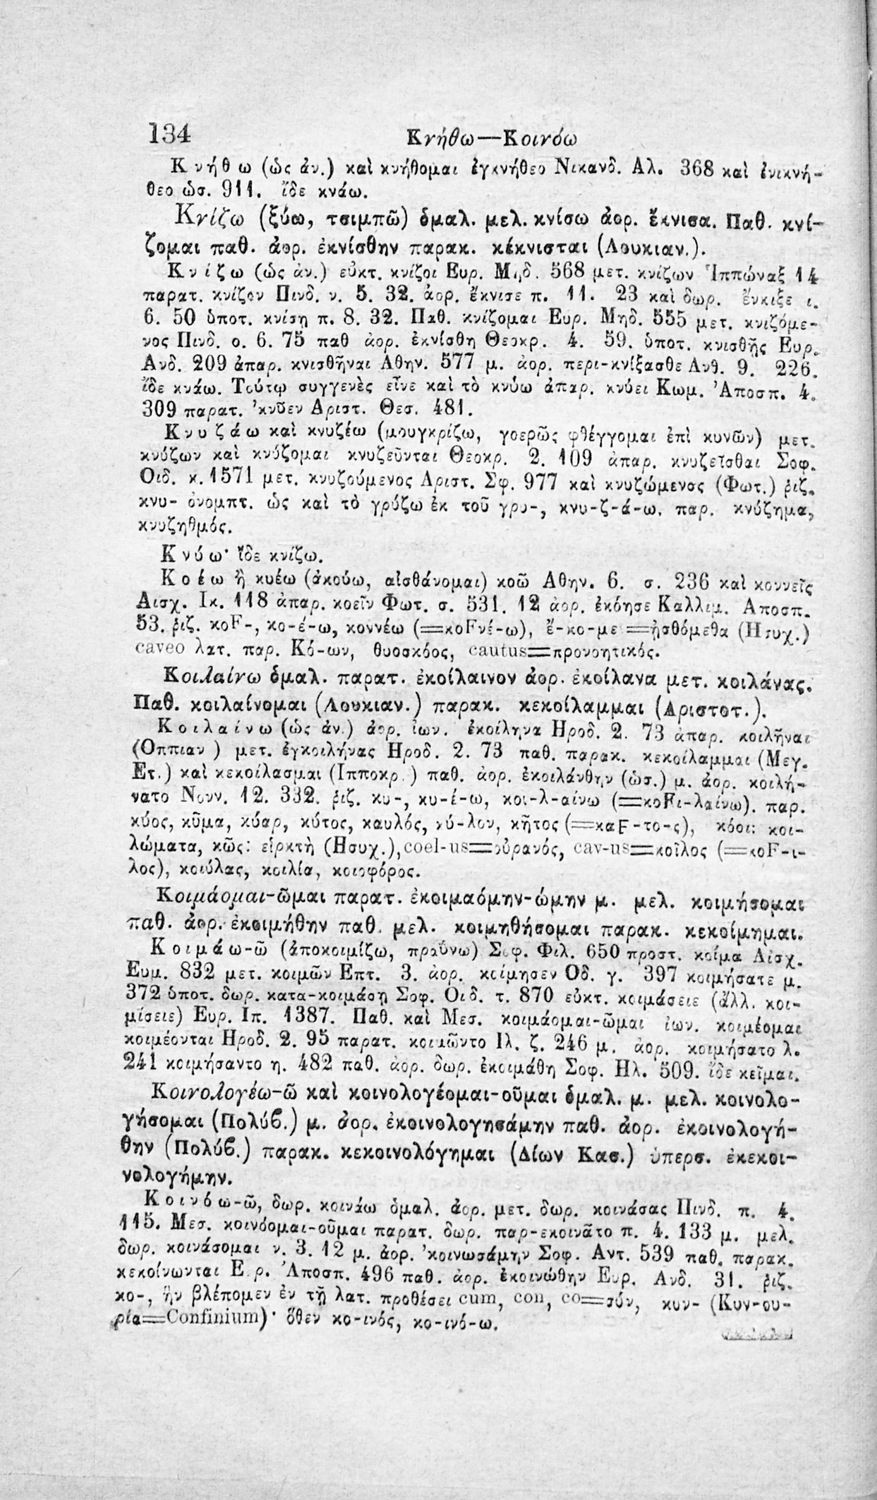 134 Κνήθω—Κοινόω
Κνήθω (ὡς ἀν.) καὶ κνήθομαι ἐγκνήθεο Νικανδ. Αλ. 368 καὶ ἐνικνή-
θεο ὡσ. 911. ἴδε κνάω.
Κνίζω (ξύω, τσιμπῶ) ὁμαλ. μελ. κνίσω ἀορ. ἔκνισα. Παθ. κνί-
ζομαι παθ. ἀορ. ἐκνίσθην παρακ. κέκνισται (Λουκιαν.).
Κνίζω (ὡς ἀν.) εὐκτ. κνίζοι Ευρ. Μηδ. 568 μετ. κνίζων Ἱππώναξ 14
παρατ. κνίζον Πινδ. ν. 5. 32. ἀορ. ἔκνισε π. 11. 23 καὶ δωρ. ἔνκιξε ι.
6. 50 ὑποτ. κνίσῃ π. 8. 32. Παθ. κνίζομαι Ευρ. Μηδ. 555 μετ. κνιζόμε-
νος Πινδ. ο. 6. 75 παθ ἀορ. ἐκνίσθη Θεοκρ. 4. 59. ὑποτ. κνισθῇς Ευρ.
Ανδ. 209 ἀπαρ. κνισθῆναι Αθην. 577 μ. ἀορ. περι-κνίξασθε Ανθ. 9. 226.
ἴδε κνάω. Τούτῳ συγγενὲς εἶνε καὶ τὸ κνύω ἀπαρ. κνύει Κωμ. Ἀποσπ. 4.
309 παρατ. 'κνῦεν Αριστ. Θεσ. 481.
Κνυζάω καὶ κνυζέω (μουγκρίζω, γοερῶς φθέγγομαι ἐπὶ κυνῶν) μετ.
κνύζων καὶ κνύζομαι κνυζεῦνται Θεοκρ. 2. 109 ἀπαρ. κνυζεῖσθαι Σοφ.
Οιδ. κ. 1571 μετ. κνυζούμενος Αριστ. Σφ. 977 καὶ κνυζώμενος (Φωτ.) ῥιζ.
κνυ- ὀνομπτ. ὡς καὶ τὸ γρύζω ἐκ τοῦ γρυ-, κνυ-ζ-ά-ω. παρ. κνύζημα,
κνυζηθμός.
Κνύω· ἴδε κνίζω.
Κοέω ἢ κυέω (ἀκούω, αἰσθάνομαι) κοῶ Αθην. 6. σ. 236 καὶ κοννεῖς
Αισχ. Ικ. 118 ἀπαρ. κοεῖν Φωτ. σ. 531. 12 ἀορ. ἐκόησε Καλλιμ. Αποσπ.
53. ῥιζ. κοF-, κο-έ-ω, κοννέω (=κοFνέ-ω), ἔ-κο-με =ᾐσθόμεθα (Ησυχ.)
caveo λατ. παρ. Κό-ων, θυοσκόος, cautus=προνοητικός.
Κοιλαίνω ὁμαλ. παρατ. ἐκοίλαινον ἀορ. ἐκοίλανα μετ. κοιλάνας.
Παθ. κοιλαίνομαι (Λουκιαν.) παρακ. κεκοίλαμμαι (Αριστοτ.).
Κοιλαίνω (ὡς ἀν.) ἀορ. ἰων. ἐκοίληνα Ηροδ. 2. 73 ἀπαρ. κοιλῆναι
(Οππιαν ) μετ. ἐγκοιλήνας Ηροδ. 2. 73 παθ. παρακ. κεκοίλαμμαι (Μεγ.
Ετ.) καὶ κεκοίλασμαι (Ιπποκρ.) παθ. ἀορ. ἐκοιλάνθην (ὡσ.) μ. ἀορ. κοιλή-
νατο Νονν. 12. 332. ῥιζ. κυ-, κυ-έ-ω, κοι-λ-αίνω (=κοFι-λαίνω). παρ.
κύος, κῦμα, κύαρ, κύτος, καυλός, κύ-λον, κῆτος (=καF-το-ς), κόοι: κοι-
λώματα, κῶς: εἱρκτὴ (Ησυχ.), coel-us=οὐρανός, cav-us=κοῖλος (=κοF-ι-
λος), κοιύλας, κοιλία, κοιοφόρος.
Κοιμάομαι-ῶμαι παρατ. ἐκοιμαόμην-ώμην μ. μελ. κοιμήσομαι
παθ. ἀορ. ἐκοιμήθην παθ. μελ. κοιμηθήσομαι παρακ. κεκοίμημαι.
Κοιμάω-ῶ (ἀποκοιμίζω, πραΰνω) Σοφ. Φιλ. 650 προστ. κοίμα Αἰσχ.
Ευμ. 832 μετ. κοιμῶν Επτ. 3. ἀορ. κοίμησεν Οδ. γ. 397 κοιμήσατε μ.
372 ὑποτ. δωρ. κατα-κοιμάσῃ Σοφ. Οιδ. τ. 870 εὐκτ. κοιμάσειε (ἄλλ. κοι-
μίσειε) Ευρ. Ιπ. 1387. Παθ. καὶ Μεσ. κοιμάομαι-ῶμαι ἰων. κοιμέομαι
κοιμέονται Ηροδ. 2. 95 παρατ. κοιμῶντο Ιλ. ζ. 246 μ. ἀορ. κοιμήσατο λ.
241 κοιμήσαντο η. 482 παθ. ἀορ. δωρ. ἐκοιμάθη Σοφ. Ηλ. 509. ἴδε κεῖμαι.
Κοινολογέω-ῶ καὶ κοινολογέομαι-οῦμαι ὁμαλ. μ. μελ. κοινολο-
γήσομαι (Πολύβ.) μ. ἀορ. ἐκοινολογησάμην παθ. ἀορ. ἐκοινολογή-
θην (Πολύβ.) παρακ. κεκοινολόγημαι (Δίων Κασ.) ὑπερσ. ἐκεκοι-
νολογήμην.
Κοινόω-ῶ, δωρ. κοινάω ὁμαλ. ἀορ. μετ. δωρ. κοινάσας Πινδ. π. 4.
115. Μεσ. κοινόομαι-οῦμαι παρατ. δωρ. παρ-εκοινᾶτο π. 4. 133 μ. μελ.
δωρ. κοινάσομαι ν. 3. 12 μ. ἀορ. 'κοινωσάμην Σοφ. Αντ. 539 παθ. παρακ.
κεκοίνωνται Ε.ρ. Ἀποσπ. 496 παθ. ἀορ. ἐκοινώθην Ευρ. Ανδ. 31. ῥιζ.
κο-, ἣν βλέπομεν ἐν τῇ λατ. προθέσει cum, con, co=σύν, κυν- (Κυν-ου-
ρία=Confinium)· ὅθεν κο-ινός, κο-ινό-ω.